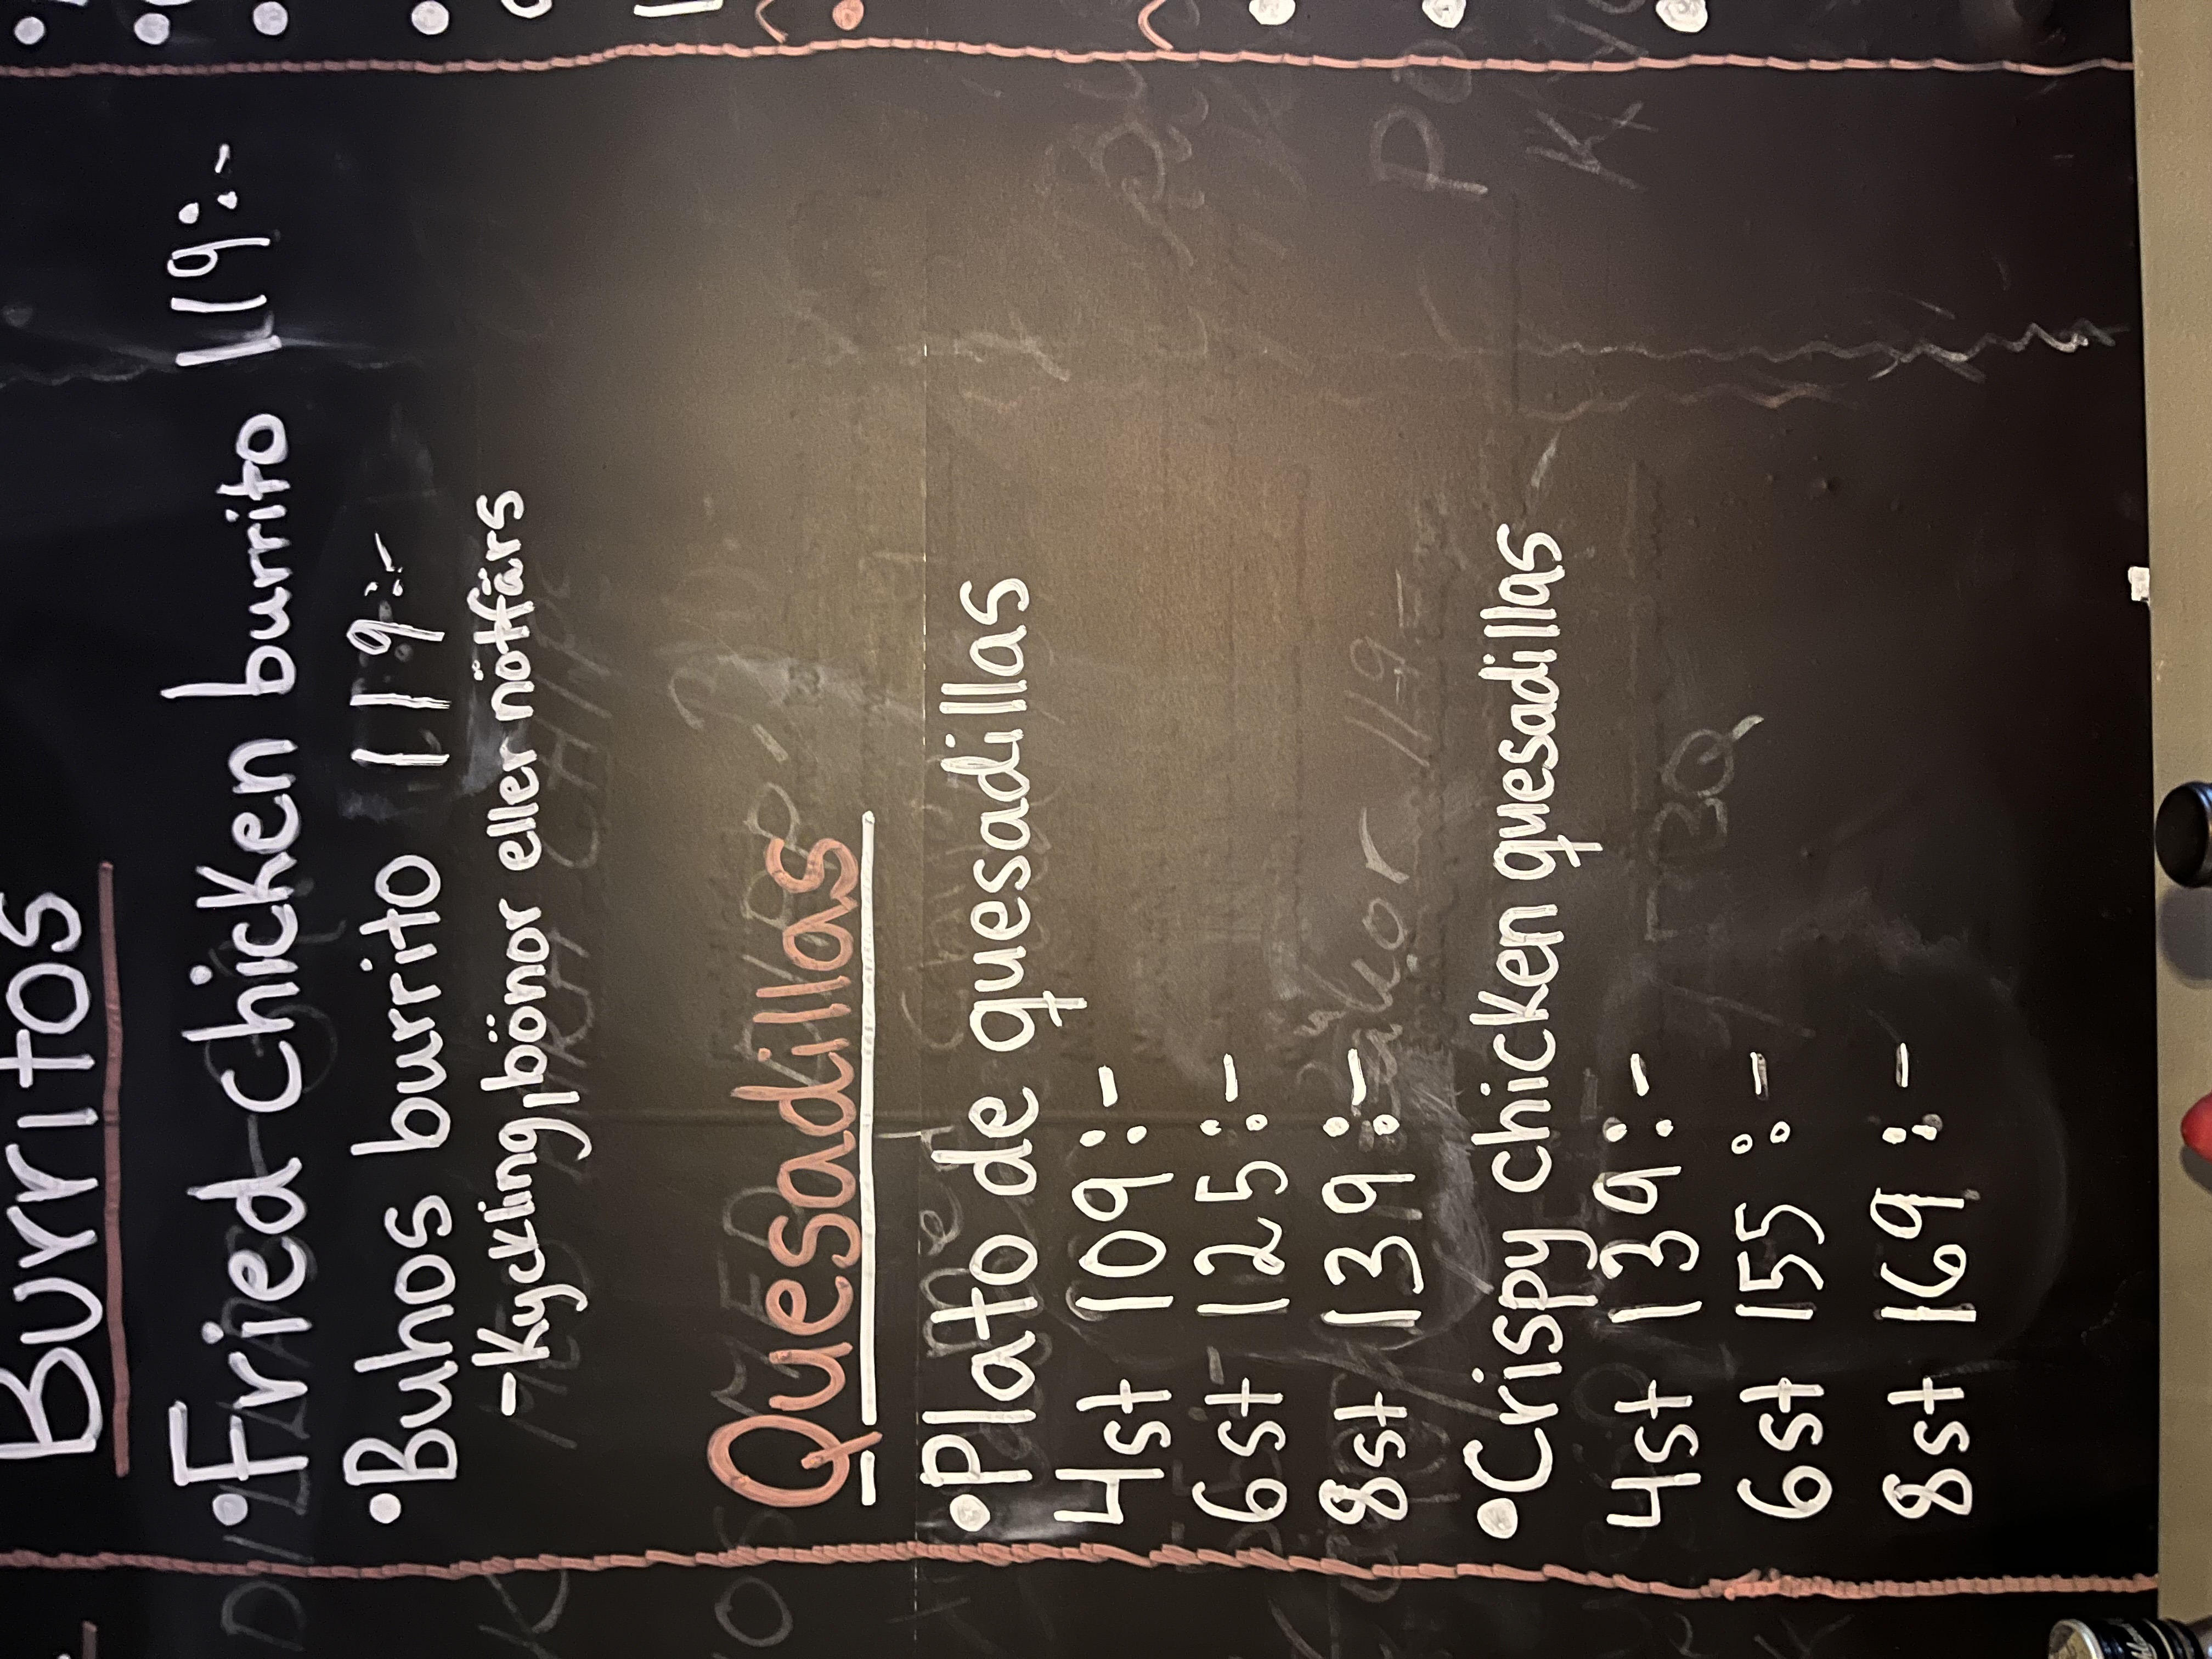 Burritos
•Fried chicken burrito 119:-
•Buhos burrito 119:-
-Kyckling, bönor eller nötfärs
Quesadillas
•Plato de quesadillas
4st 109:-
6st 125:-
8st 139:-
•Crispy chicken quesadillas
4st 139:-
6st 155:-
8st 169:-